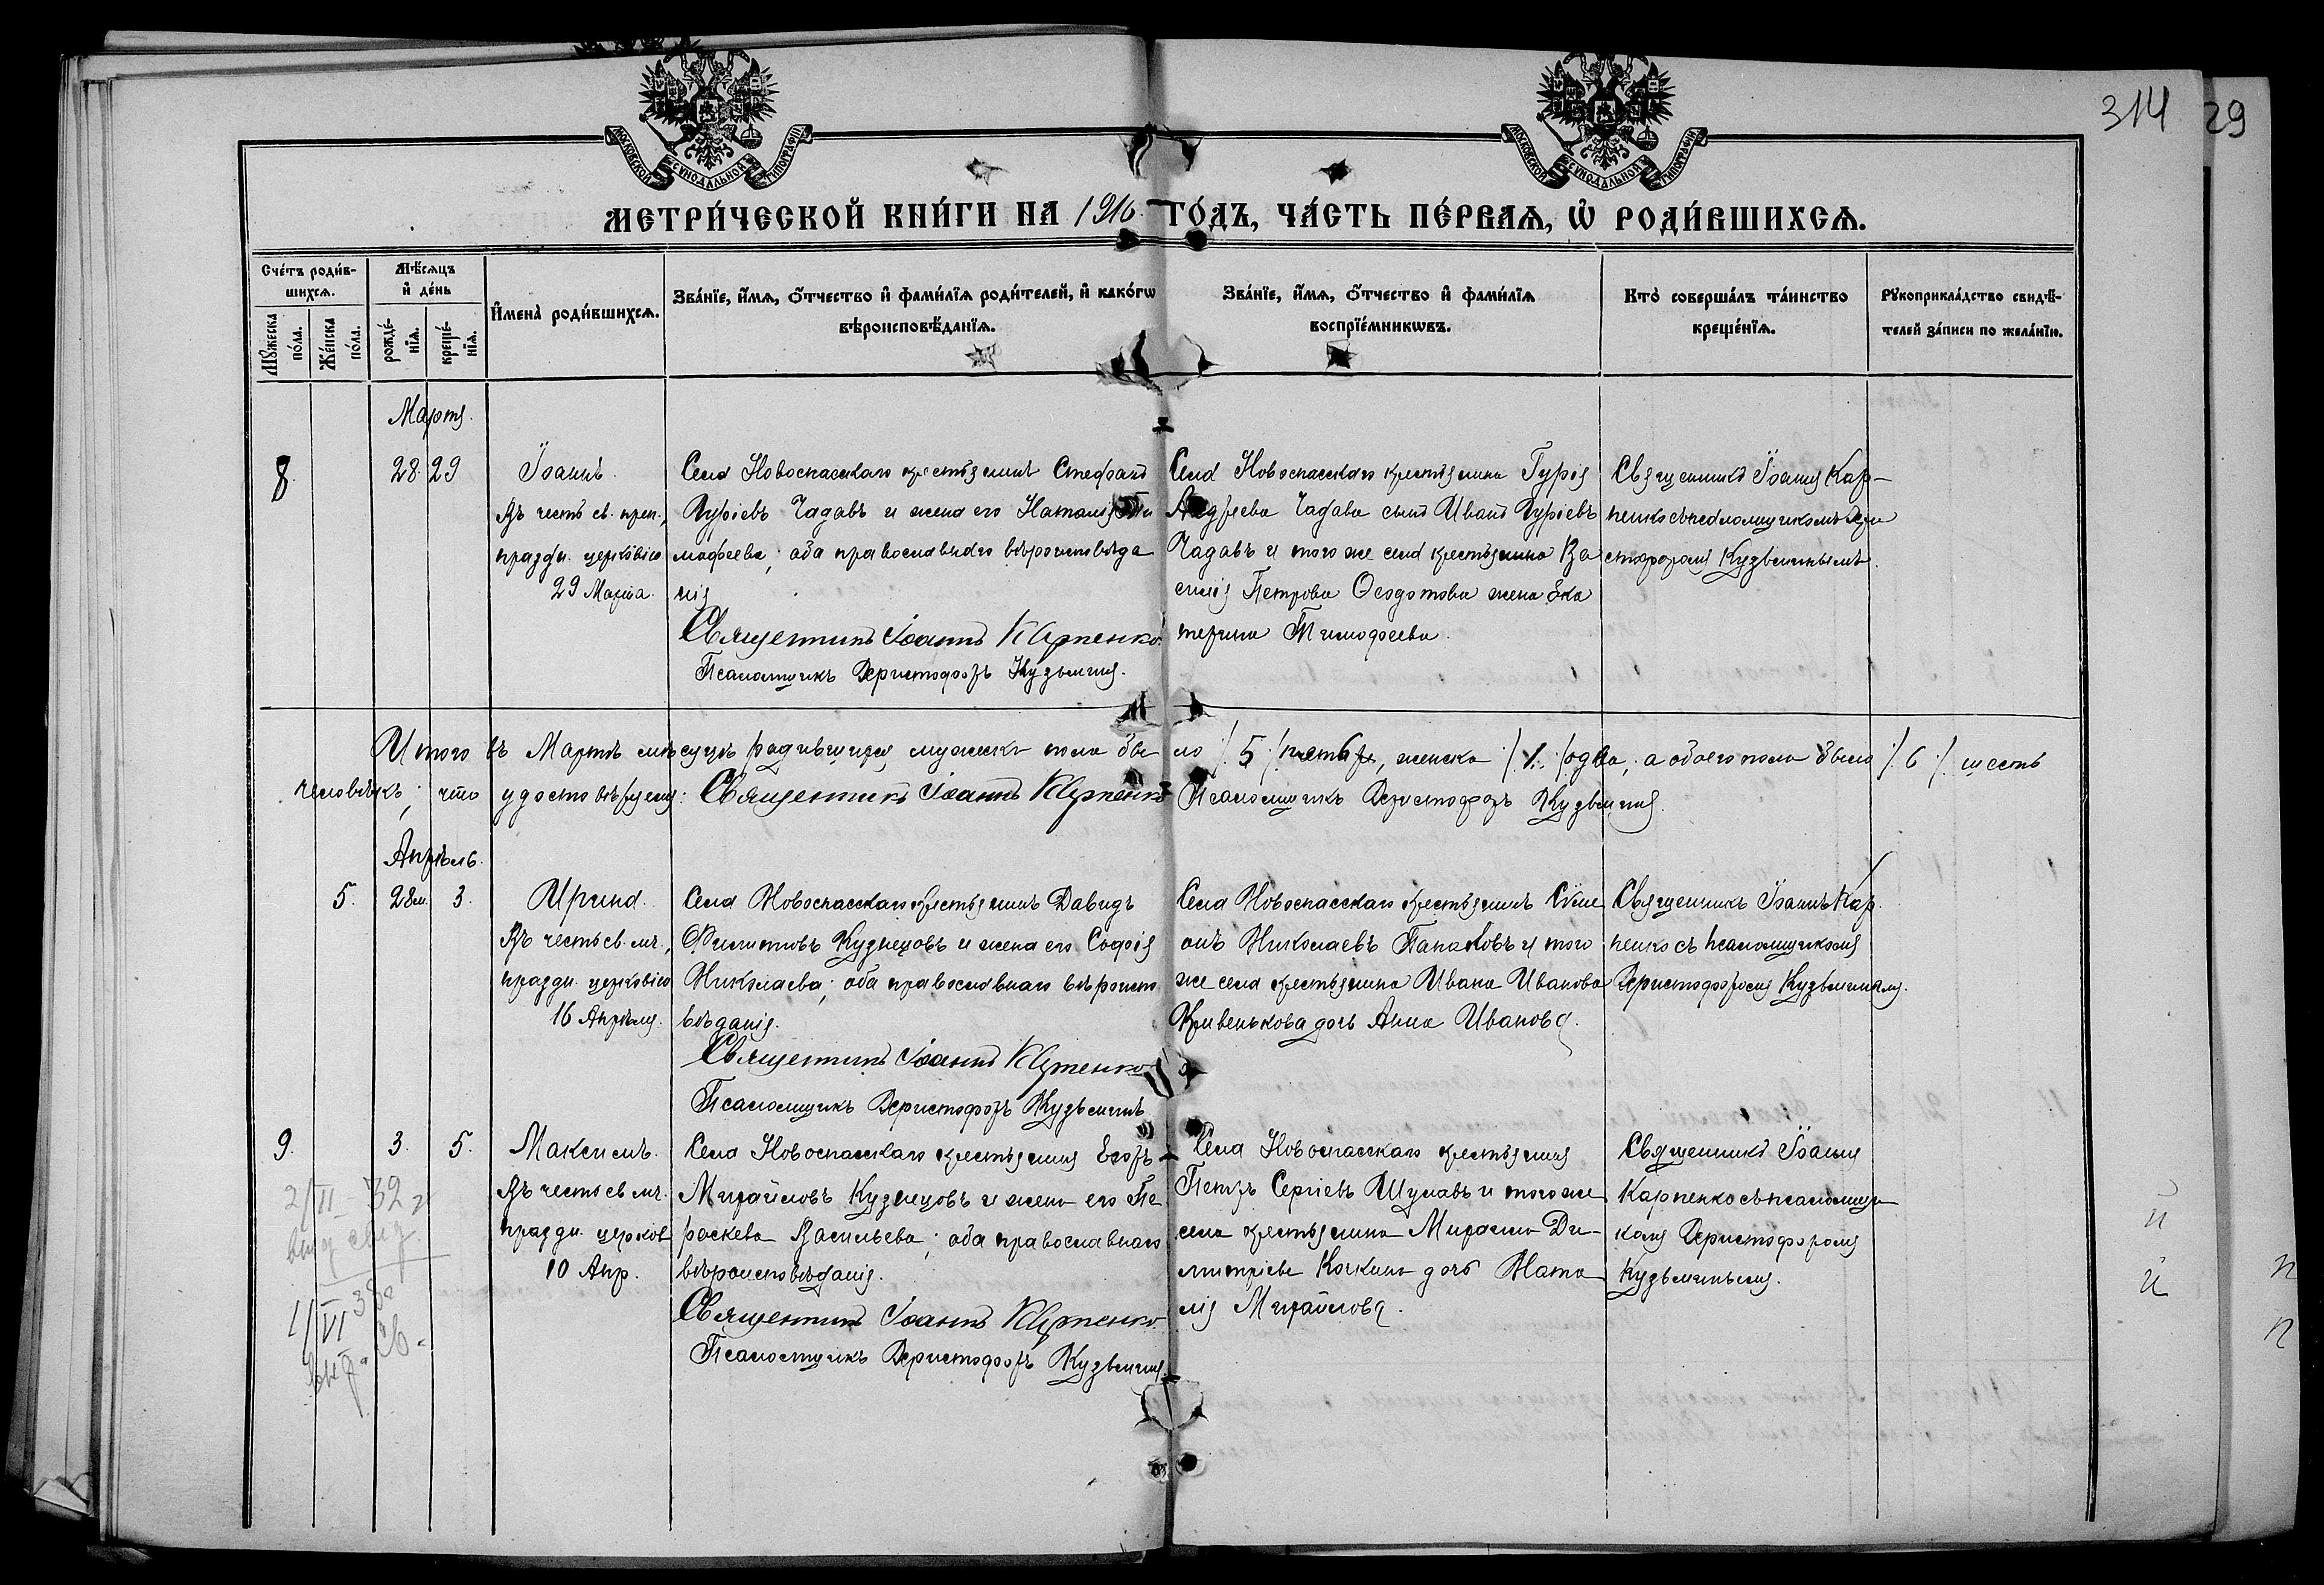 314 29
МОСКОВСКОЙ СУНОДАЛЬНОЙ ТИПОГРАФІИ
МОСКОВСКОЙ СУНОДАЛЬНОЙ ТИПОГРАФІИ
МЕТРИ́ЧЕСКОЙ КНИ́ГИ НА 1916 ГО́ДЪ, ЧА́СТЬ ПЕ́РВАѦ, Ѡ҆ РОДИ́ВШИХСѦ.
Сче́тъ роди́в-
шихсѧ.
Мꙋжеска по́ла.
Же́нска по́ла.
Мѣ́сѧцъ
и҆ де́нь
рожде́-
нїѧ.
креще́-
нїѧ.
И҆мена̀ роди́вшихсѧ.
Зва́нїе, и҆́мѧ, о҆́тчество и҆ фами́лїѧ роди́телей, и҆ како́гѡ
вѣроисповѣ́данїѧ.
Зва́нїе, и҆́мѧ, о҆́тчество и҆ фами́лїѧ
воспрїе́мникѡвъ.
Кто̀ соверша́лъ та́инство
креще́нїѧ.
Рꙋкоприкла́дство свидѣ́-
телей за́писи по жела́нїю.
Мартъ.
8. 28. 29
Іоаннъ.
Въ честь св. преп.,
праздн. церковію
29 Марта.
Села Новоспасскаго крестьянинъ Стефанъ
Гуріевъ Чадавъ и жена его Наталія Ти
мофеева; оба православнаго вѣроисповѣда
нія
Священникъ Іоаннъ Карпенко.
Псаломщикъ Христофоръ Кузьминъ.
Села Новоспасскаго крестьянина Гурія
Андреева Чадава сынъ Иванъ Гуріевъ
Чадавъ и того же села крестьянина Ва
силія Петрова Ѳеодотова жена Ека
терина Тимофеева.
Священникъ Іоаннъ Кар-
пенко съ псаломщикомъ Хри
стофоромъ Кузьминымъ.
Итого въ Мартѣ мѣсяцѣ родившихся мужеска пола бы ло /. 5 ./ пятеро, женска /. 1. / одна, а обоего пола было /. 6 ./ шесть
человѣкъ; что удостовѣряемъ: Священникъ Іоаннъ Карпенко Псаломщикъ Христофоръ Кузьминъ.
Апрѣль.
5. 28м. 3.
Ирина.
Въ честь св. мч.,
праздн. церковію
16 Апрѣля.
Села Новоспасскаго крестьянинъ Давидъ
Филипповъ Кузнецовъ и жена его Софія
Николаева; оба православнаго вѣроиспо
вѣданія.
Священникъ Іоаннъ Карпенко
Псаломщикъ Христофоръ Кузьминъ
Села Новоспасскаго крестьянинъ Симе
онъ Николаевъ Папаковъ и того
же села крестьянина Ивана Иванова
Кривенькова дочь Анна Иванова.
Священникъ Іоаннъ Кар
пенко съ псаломщикомъ
Христофоромъ Кузьминымъ.
9. 3. 5.
Максимъ.
Въ честь св мч.
праздн. церков
10 Апр.
Села Новоспасскаго крестьянинъ Егоръ
Михайловъ Кузнецовъ и жена его Па
раскева Васильева; оба православнаго
вѣроисповѣданія.
Священникъ Іоаннъ Карпенко
Псаломщикъ Христофоръ Кузьминъ.
Села Новоспасскаго крестьянинъ
Петръ Сергіевъ Шулавъ и того же
села крестьянина Михаила Ди-
митріева Кочкина дочь Ната
лія Михайлова.
Священникъ Іоаннъ
Карпенко съ псаломщи
комъ Христофоромъ
Кузьминымъ.
2/II-32 г
выд свид.
1/VI 38г
выд. св.